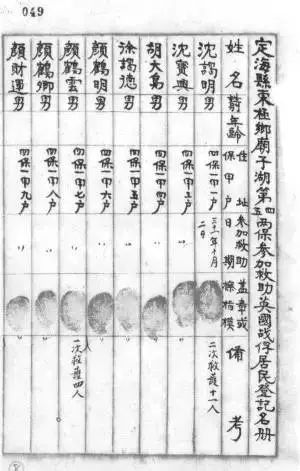 049
定海縣東極鄉廟子湖第四五兩保參加救助英國战俘居民登記名册
姓名 年齡 住址 保甲户 參加救助日期 盖章或捺指模 備考
沈阿明 男 四保一甲一户 三十一年十月二日 二次救護十一人
沈寶興 男 四保一甲三户 〃 〃
胡大 男 四保一甲四户 〃 〃
徐阿德 男 四保一甲五户 〃 〃
顏鶴明 男 四保一甲六户 〃 〃
顏鶴雲 男 四保一甲七户 〃 〃 一次救護四人
顏鶴卿 男 四保一甲八户 〃 〃
顏財運 男 四保一甲九户 〃 〃